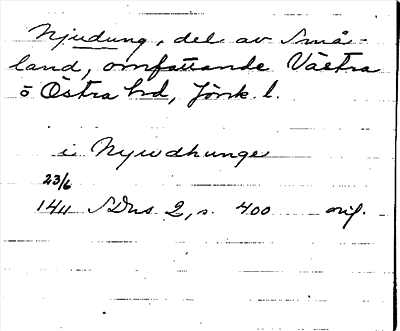 Njudung, del av Små-
land, omfattande Västra
o Östra hd, Jönk. l.
i Nywdhunge
23/6
1411 SDns 2, s. 400 orig.